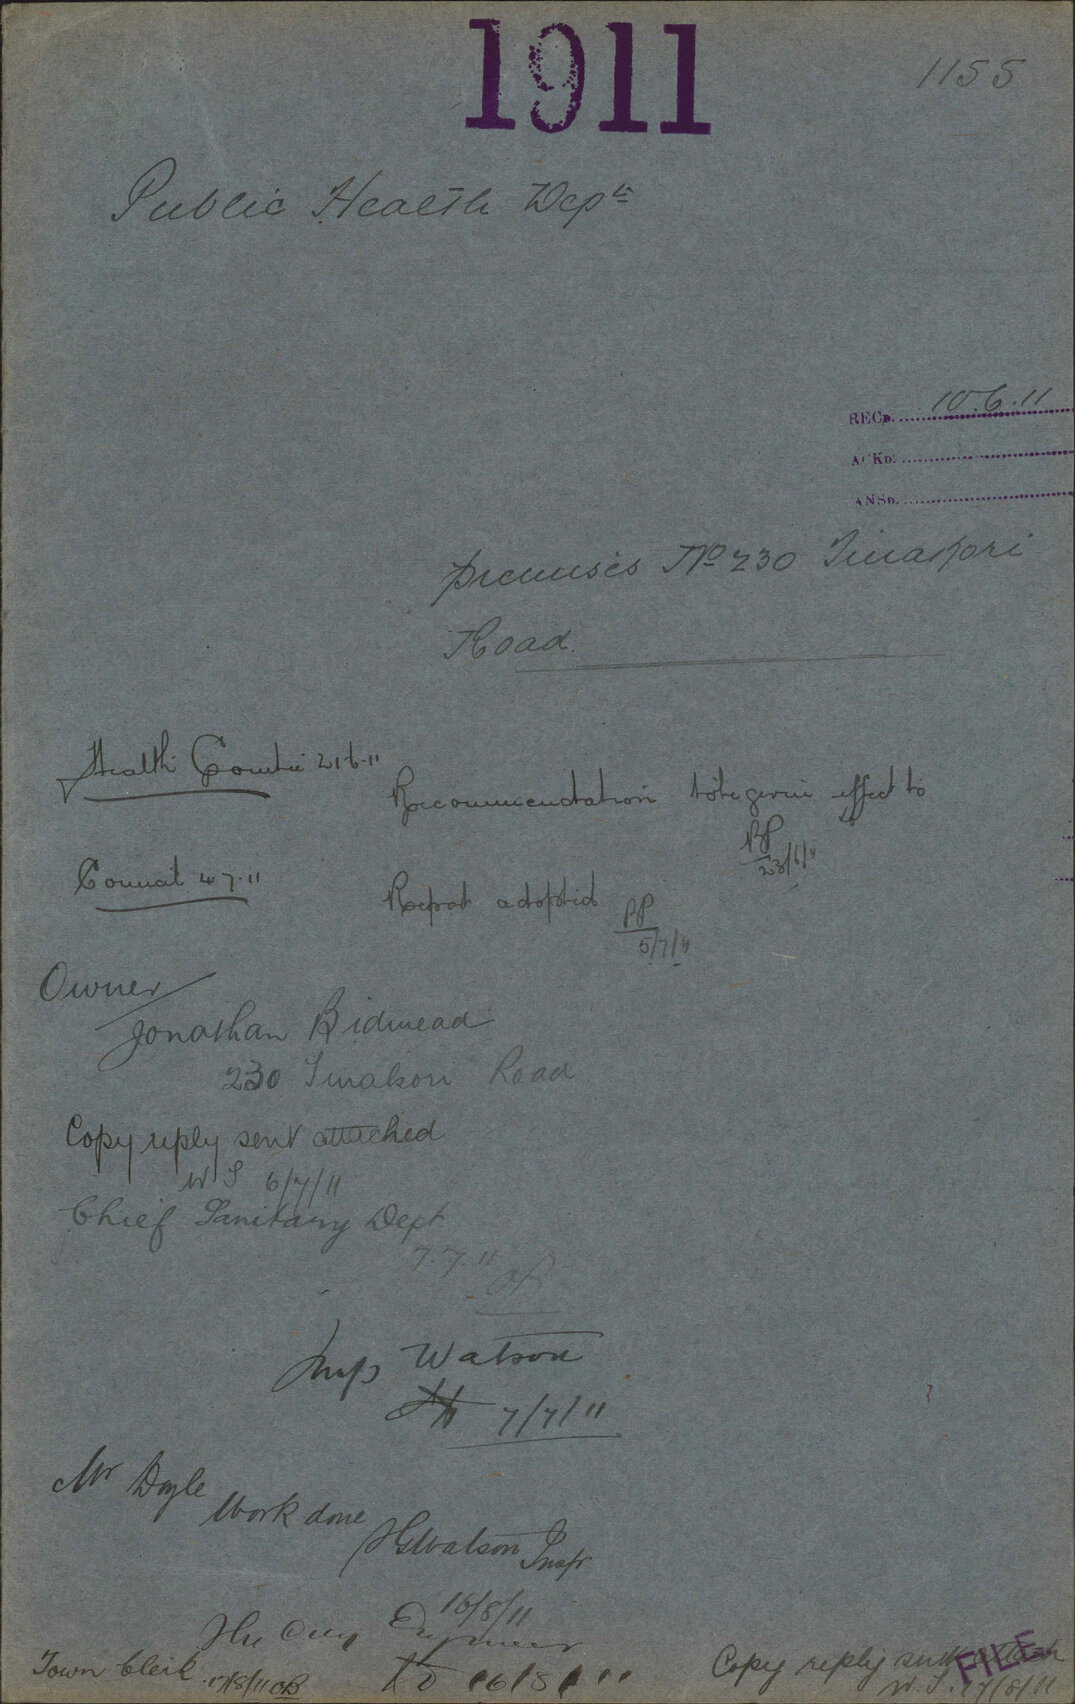 1911
1155
Public Health Dept
RECD. 10.6.11
ACKD.
ANSD.
premises No 230 Tinakori
Road.
Health Comtee 21.6.11
Recommendation to be given effect to
23/6/11
Council 4.7.11
Report adopted
5/7/11
Owner
Jonathan Bidmead
230 Tinakori Road
Copy reply sent attached
W S 6/7/11
Chief Sanitary Dept
7.7.11
Insp Watson
7/7/11
Mr Doyle
Work done
HGWatson Inspr
16/8/11
The City Engineer
Town Clerk 17/8/11
16/8/11
Copy reply sent
W.S. 17/8/11
FILE